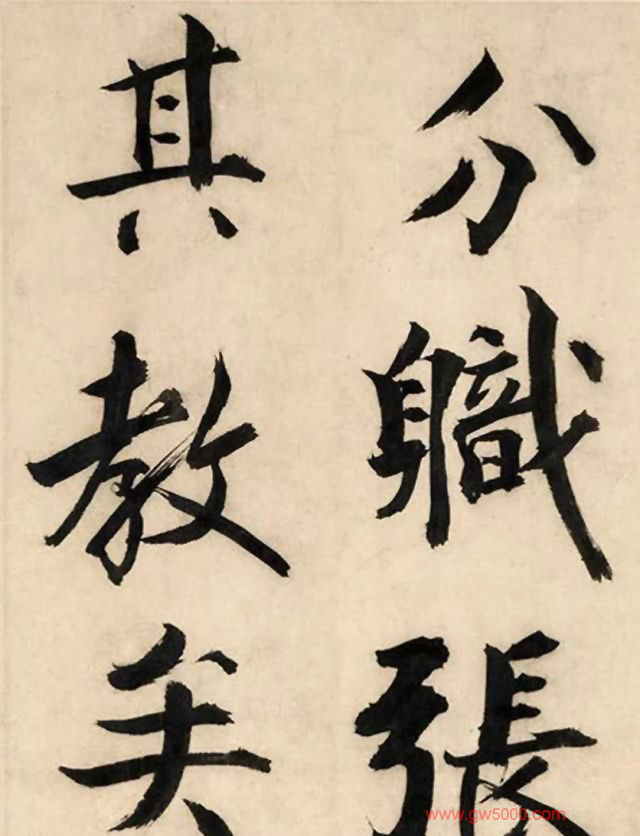 分軄張
其教矣
www.gw5000.com